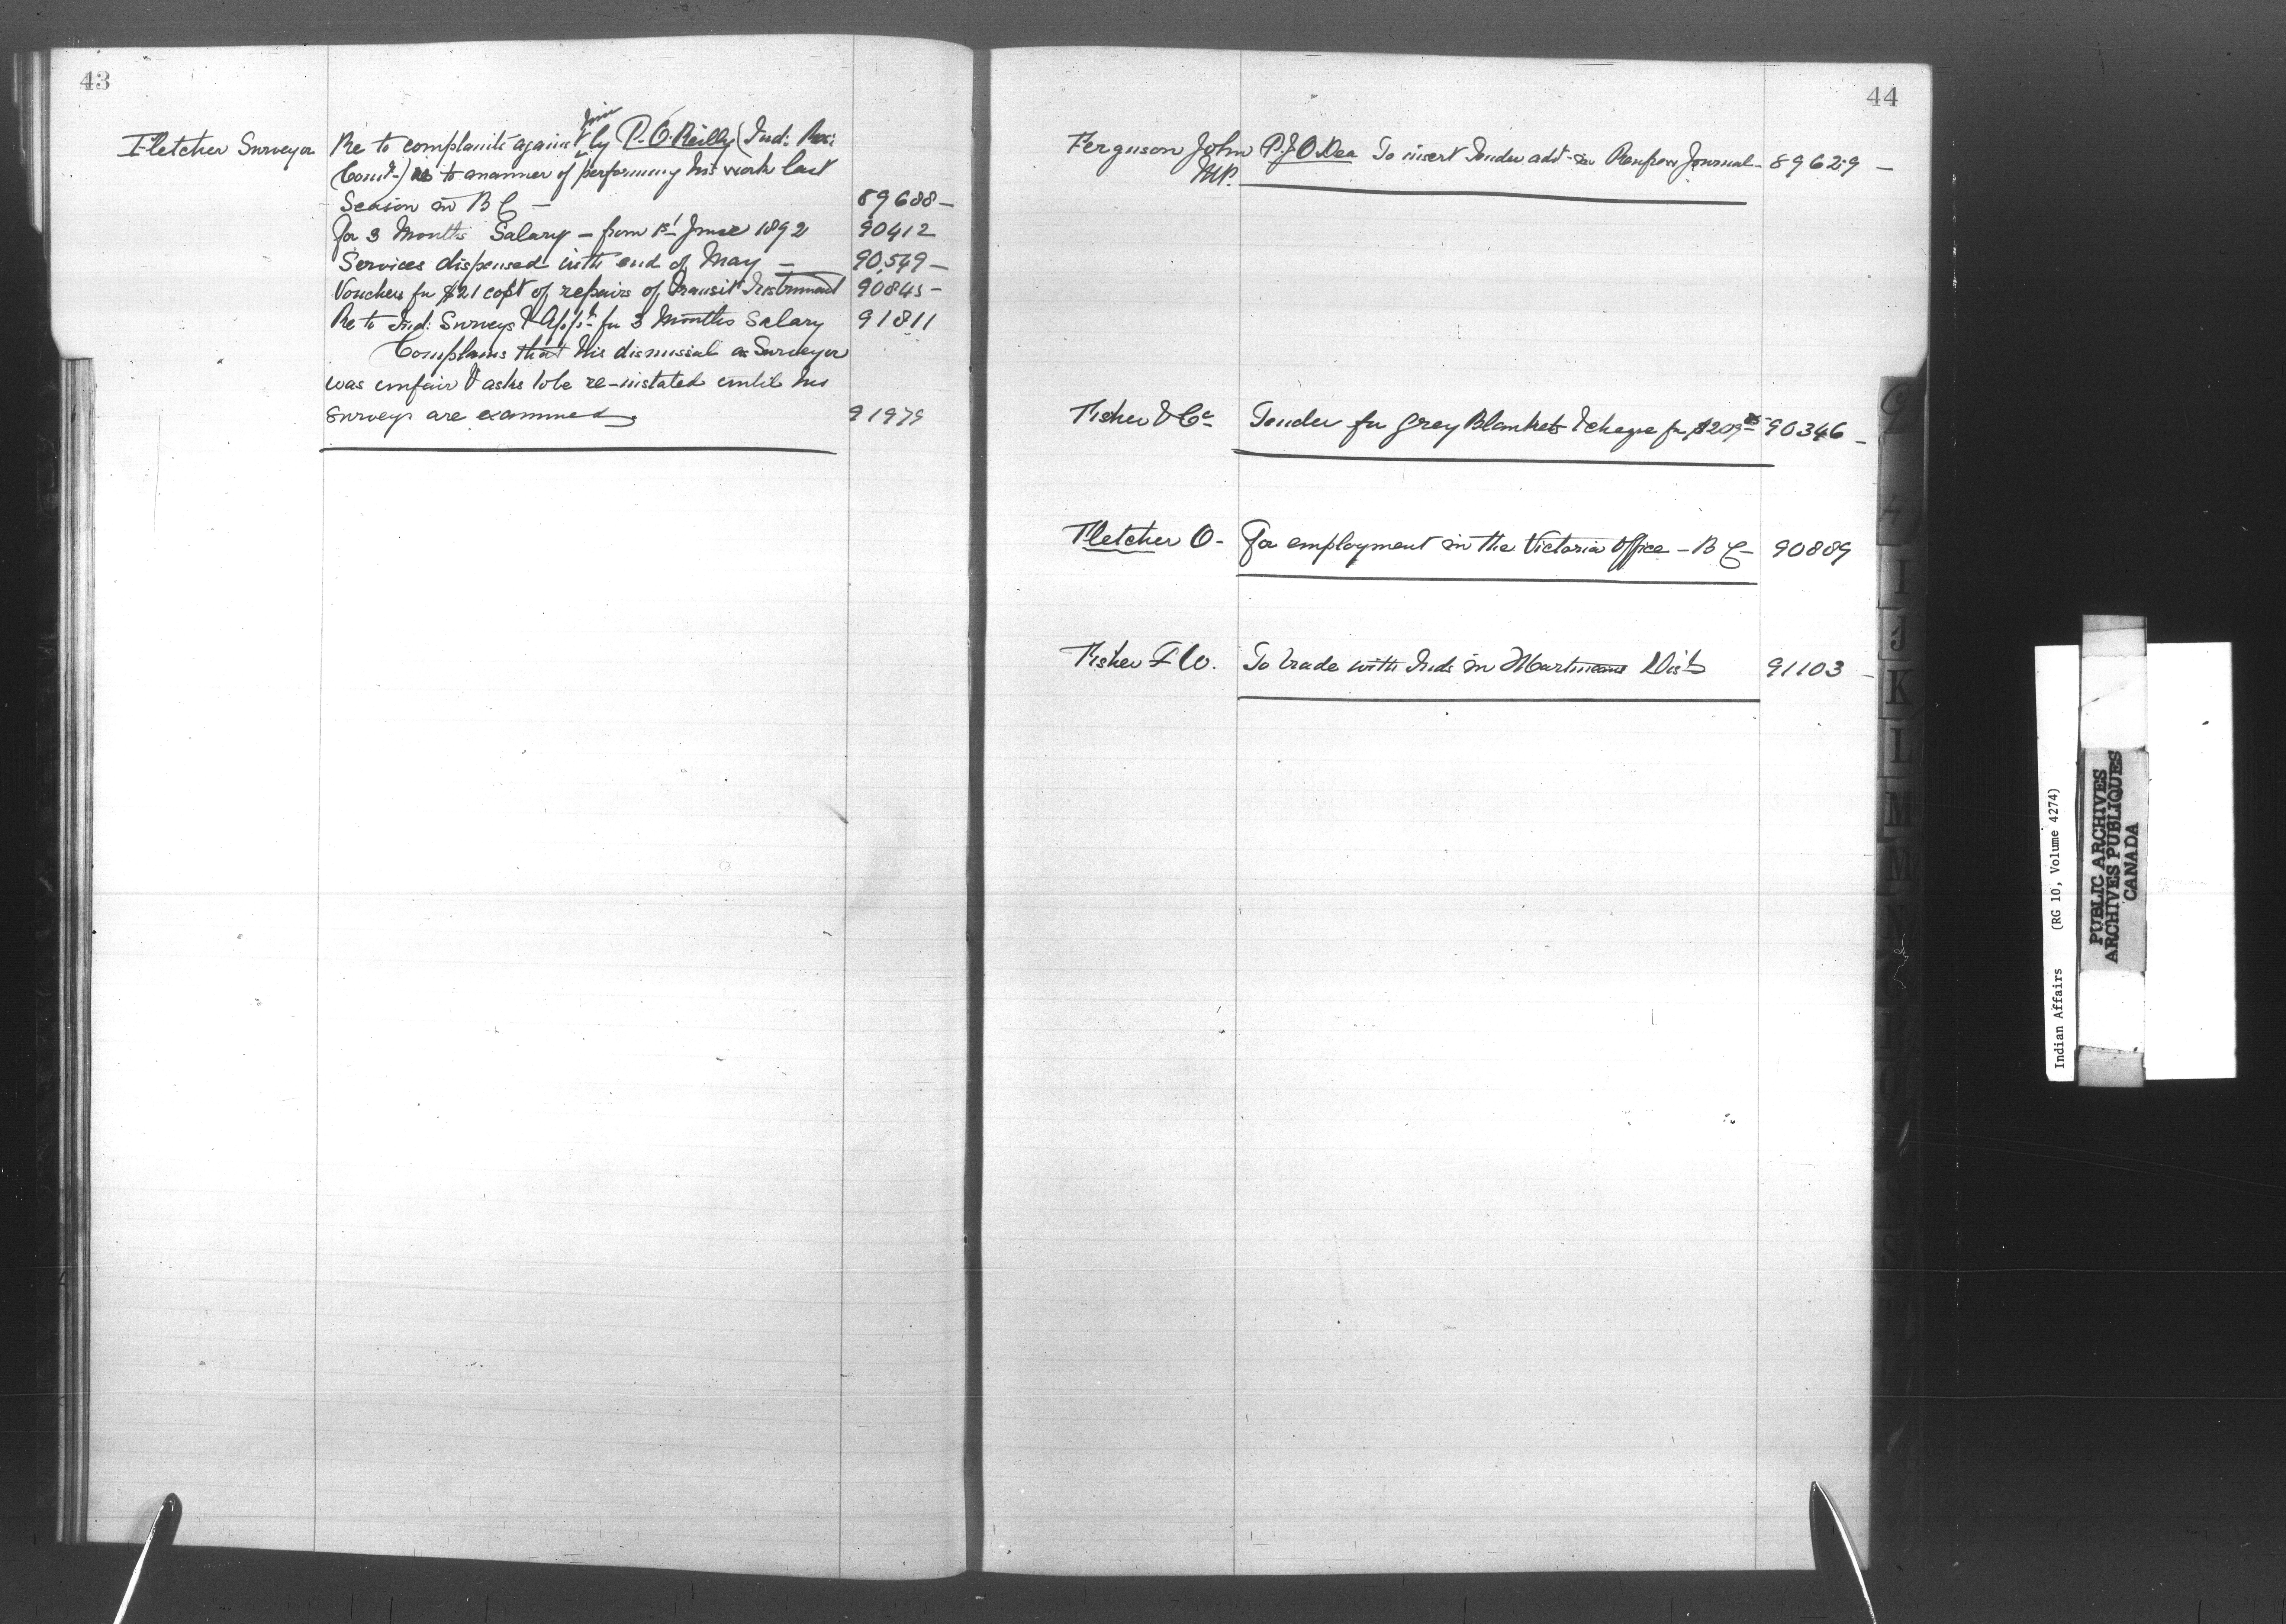 43
Fletcher Surveyor Re to complaints against him by P. O'Reilly (Ind: Res:
Comr-) as to manner of performing his work last
Season in B C — 89688 —
For 3 Months Salary — from 1st June 1892 90412
Services dispensed with end of May — 90,549 —
Vouchers for $21 cost of repairs of Transit Instrument 90845 —
Re to Ind: Surveys & Applt for 3 Months Salary 91811
Complains that his dismissal as Surveyor
was unfair & asks to be re-instated until his
surveys are examined 91979
44
Ferguson John P. J O.Dea To insert Tender advt in Renfrew Journal - 89629 —
M.P.
Fisher & Co Tender for Grey Blankets & cheque for $209 90346 —
Fletcher O - For employment in the Victoria Office — B C — 90889
Fisher F W. To trade with Inds in Dist 91103 —
G
I
J
K
L
M
Mc
N
S
Indian Affairs (RG 10, Volume 4274)
PUBLIC ARCHIVES
ARCHIVES PUBLIQUES
CANADA